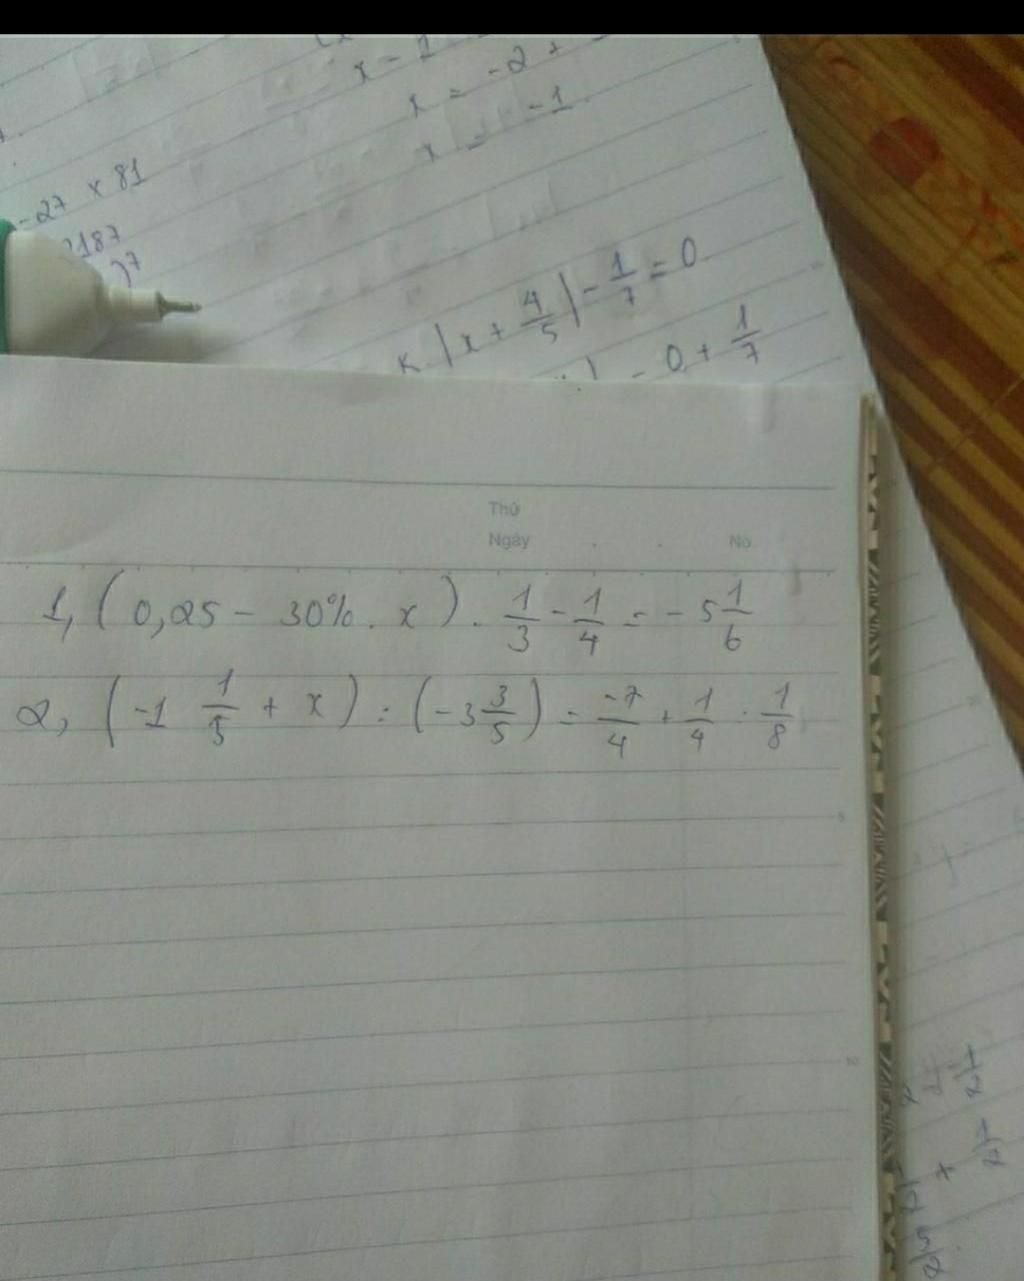 x = -2 +
x = -1
-27 x 81
2187
)⁷
|x + 4/5| - 1/7 = 0
0 + 1/7
Thứ
Ngày No
1, (0,25 - 30% . x) . 1/3 - 1/4 = - 5 1/6
2, (-1 1/5 + x) : (-3 3/5) = -7/4 + 1/4 . 1/8